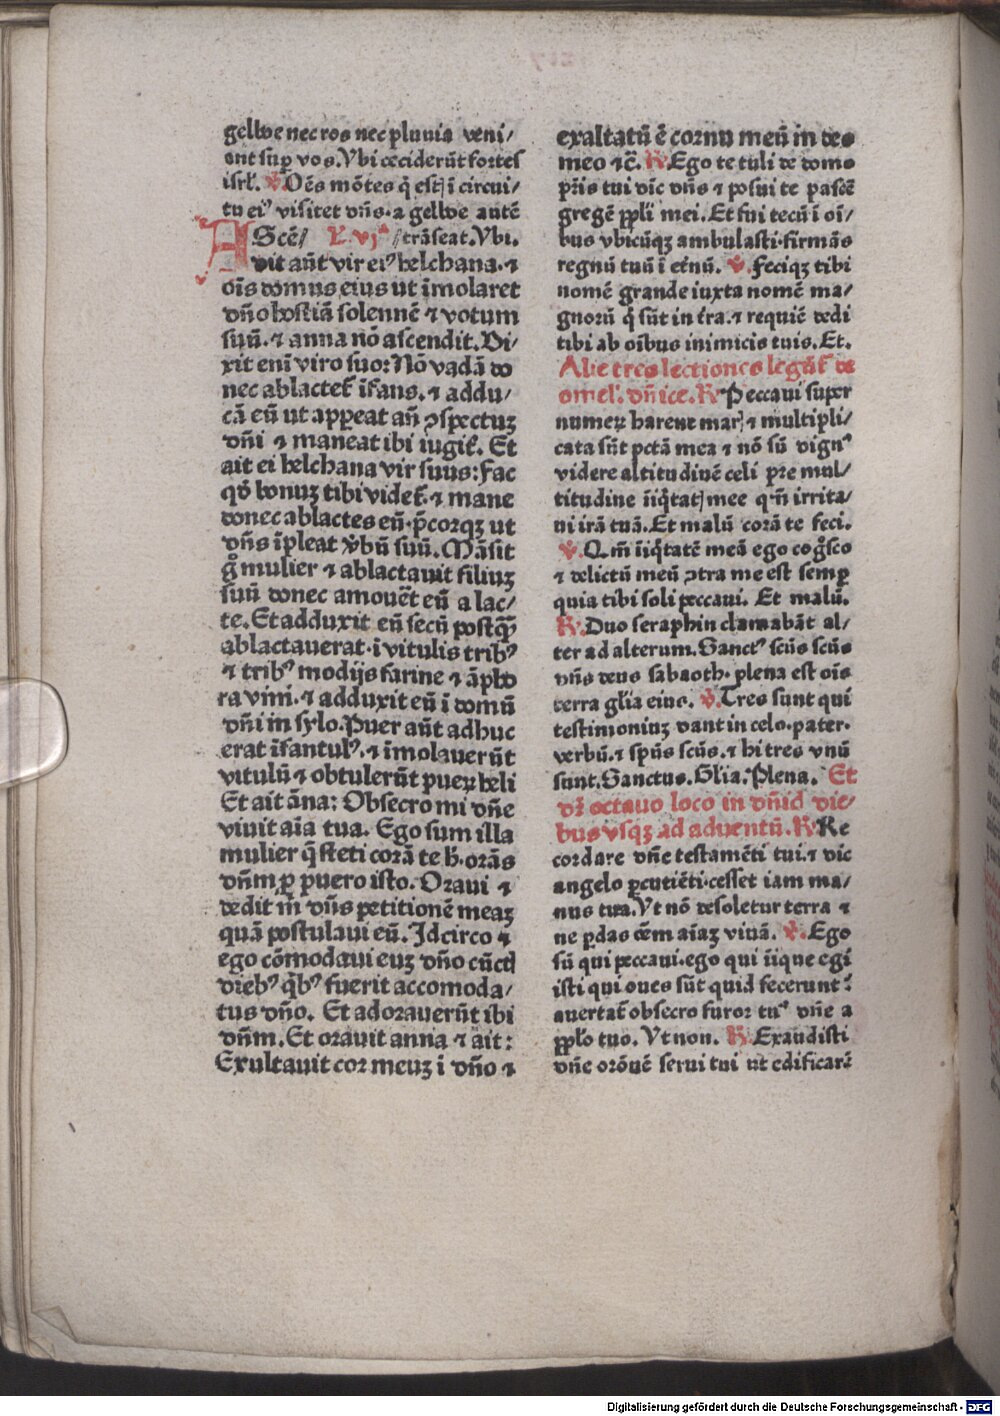 gelboe nec ros nec pluuia veni/
ant sup̱ vos. Vbi ceciderūt fortes
isrl̄. ℣. Oēs mōtes q̄ estꝭ ī circui/
tu eiꝰ visitet dn̄s. a gelboe autē
AScē/ L. vjᵃ /trāseat. Vbi.
dit aūt vir eiꝰ helchana. ⁊
oīs domus eius ut īmolaret
dn̄o hostiā solennē ⁊ votum
suū. ⁊ anna nō ascendit. Di/
xit enī viro suo: Nō vadā do
nec ablactet̄ īfans. ⁊ addu/
cā eū ut appeat an̄ ꝯspectuꝫ
dn̄i ⁊ maneat ibi iugit̄. Et
ait ei helchana vir suus: Fac
qd̄ bonuꝫ tibi videt̄. ⁊ mane
donec ablactes eū. p̄corqꝫ ut
dn̄s īpleat v̄bū suū. Māsit
g̊ mulier ⁊ ablactauit filiuꝫ
suū donec amouēt eū a lac/
te. Et adduxit eū secū postqꝫ̄
ablactauerat. i vitulis tribꝰ
⁊ tribꝰ modijs farine ⁊ āpho
ra vini. ⁊ adduxit eū ī domū
dn̄i in sylo. Puer aūt adhuc
erat īfantulꝰ. ⁊ īmolauerūt
vitulū ⁊ obtulerūt pueꝝ heli
Et ait āna: Obsecro mi dn̄e
viuit aīa tua. Ego sum illa
mulier q̄ steti corā te h̄. orās
dn̄m ꝑ puero isto. Oraui ⁊
dedit m̄ dn̄s petitionē meaꝫ
quā postulaui eū. Idcirco ⁊
ego cōmodaui euꝫ dn̄o cūctꝭ
diebꝰ qͥbꝰ fuerit accomoda/
tus dn̄o. Et adorauerūt ibi
dn̄m. Et orauit anna ⁊ ait:
Exultauit cor meuꝫ ī dn̄o ⁊
exaltatū ē cornu meū in deo
meo ⁊c̄. ℟. Ego te tuli de domo
pr̄is tui dic̄ dn̄s ⁊ posui te pascē
gregē ppl̄i mei. Et fui tecū ī oī/
bus vbicūqꝫ ambulasti. firmās
regnū tuū ī et̄nū. ℣. Feciqꝫ tibi
nomē grande iuxta nomē ma/
gnoꝝ q̄ sūt in t̄ra. ⁊ requiē dedi
tibi ab oībus inimicis tuis. Et.
Alie tres lectiones legūt̄ de
omel̄. dn̄ice. ℟. Peccaui super
numeꝝ harene marꝭ ⁊ multipli/
cata sūt pctā mea ⁊ nō sū dignꝰ
videre altitudinē celi pre mul/
titudine iīqͥtatꝭ mee qn̄ irrita/
ui irā tuā. Et malū corā te feci.
℣. Qm̄ iīqͥtatē meā ego cog̊sco
⁊ delictū meū ꝯtra me est semꝑ
quia tibi soli peccaui. Et malū.
℟. Duo seraphin clamabāt al/
ter ad alterum. Sanctꝰ scūs scūs
dn̄s deus sabaoth. plena est oīs
terra gl̄ia eius. ℣. Tres sunt qui
testimoniuꝫ dant in celo. pater.
verbū. ⁊ spūs scūs. ⁊ hi tres vnū
sunt. Sanctus. Glīa. Plena. Et
dr̄ octauo loco in dn̄icl̄ die/
bus vsqꝫ ad aduentū. ℟. Re
cordare dn̄e testamēti tui. ⁊ dic
angelo ꝑcutiēti. cesset iam ma/
nus tua. Vt nō desoletur terra ⁊
ne ꝑdas oēm aīaꝫ viuā. ℣. Ego
sū qui peccaui. ego qui iīque egi
isti qui oues sūt quid fecerunt:
auertat̄ obsecro furor tuꝰ dn̄e a
ppl̄o tuo. Vt non. ℟. Exaudisti
dn̄e orōnē serui tui ut edificarē
Digitalisierung gefördert durch die Deutsche Forschungsgemeinschaft - DFG